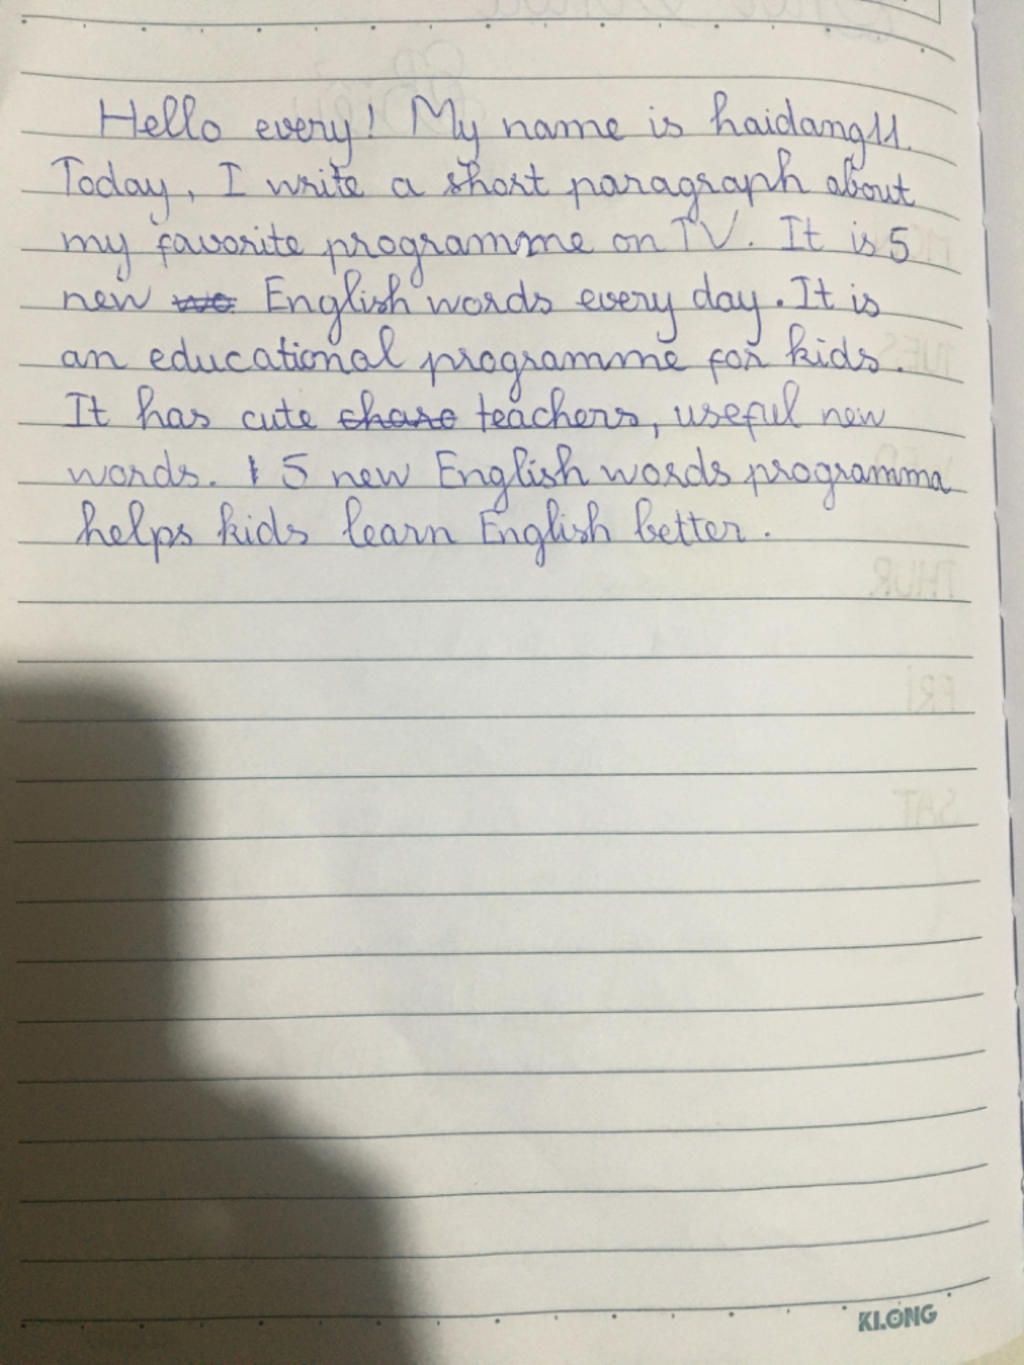 Hello every! My name is haidang11.
Today, I write a short paragraph about
my favorite programme on TV. It is 5
new English words every day. It is
an educational programme for kids.
It has cute teachers, useful new
words. 5 new English words programma
helps kids learn English better.
TUES
THUR
FRI
SAT
KLONG